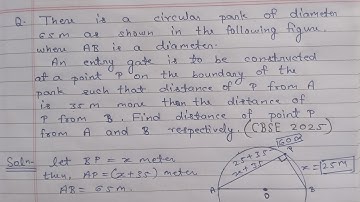 Q. There is a circular park of diameter
65m as shown in the following figure,
where AB is a diameter.
An entry gate is to be constructed
at a point P on the boundary of the
park such that distance of P from A
is 35m more than the distance of
P from B. Find distance of point P
from A and B respectively. (CBSE 2025)
Soln- let BP = x meter
then, AP = (x+35) meter
AB = 65m.
60m
25+35
x+35
P
x = 25m
A
O
B